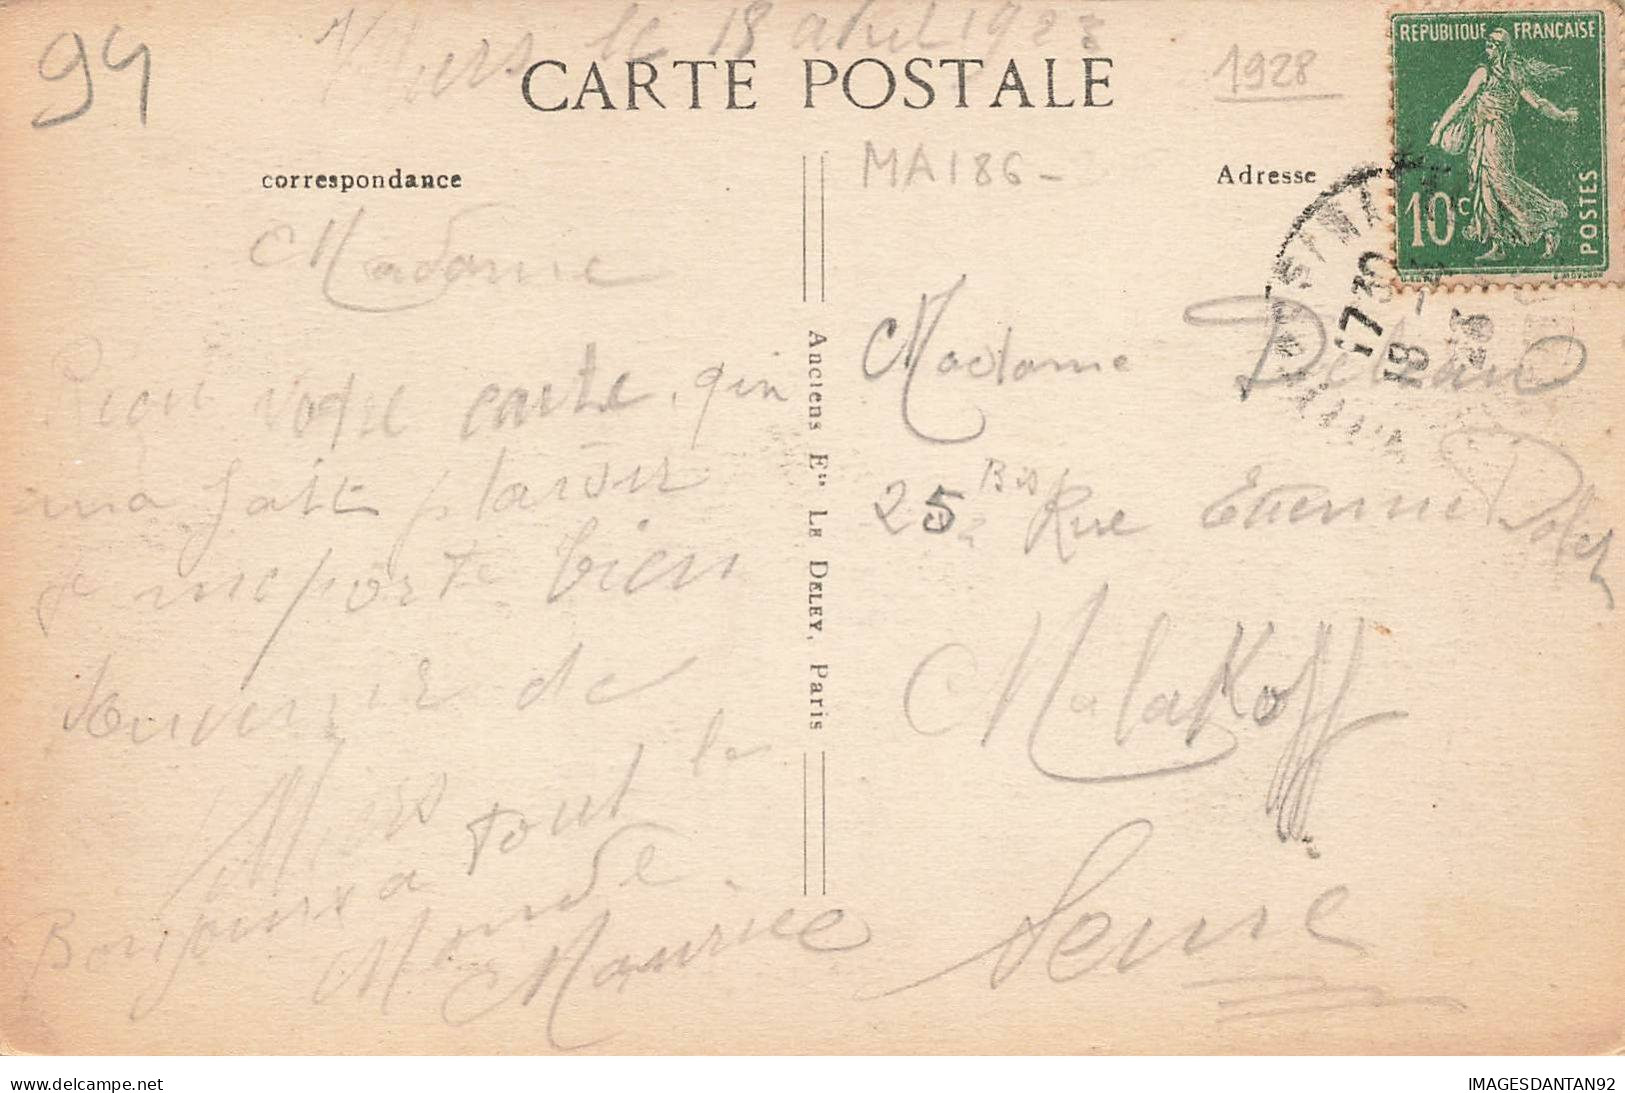 94
Villiers le 18 avril 1923
CARTE POSTALE
1928
REPUBLIQUE FRANÇAISE
10c
POSTES
correspondance
MA186-
Adresse
17 30
19 - 4
23
Madame
Reçu votre carte, qui
ma fait plaisir
je me porte bien
souvenir de
Bonjour a tout le
Monde
Maurice
Anciens Ets LE DELEY, Paris
Madame
25 Bis Rue Etienne Dolet
Malakoff
Seine
delcampe.net
IMAGESDANTAN92